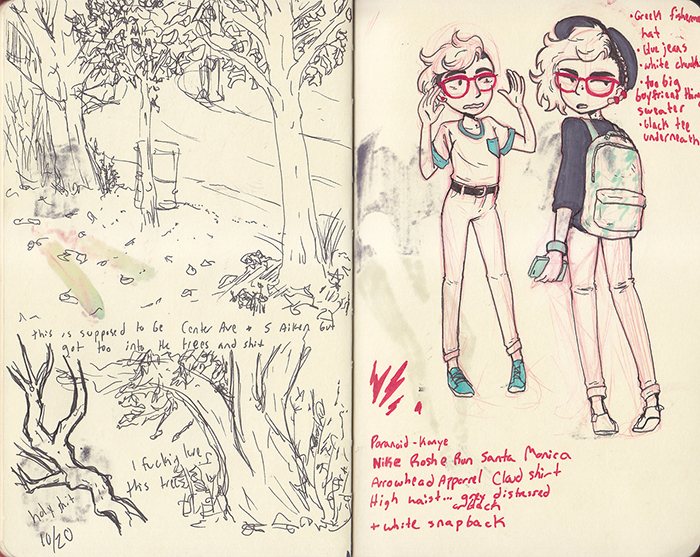 this is supposed to be Center Ave + S Aiken but
got too into the trees and shit
I fuckig luv
this tree
holy shit
10/20
• Greek fisherma
hat
• blue jeans
• white chucks
• too big
boyfriend
sweater
• black tee
underneath
VS.
Paranoid - Kanye
Nike Roshe Run Santa Monica
Arrowhead Apparrel Cloud shirt
High waist... grey distressed
+ white snapback